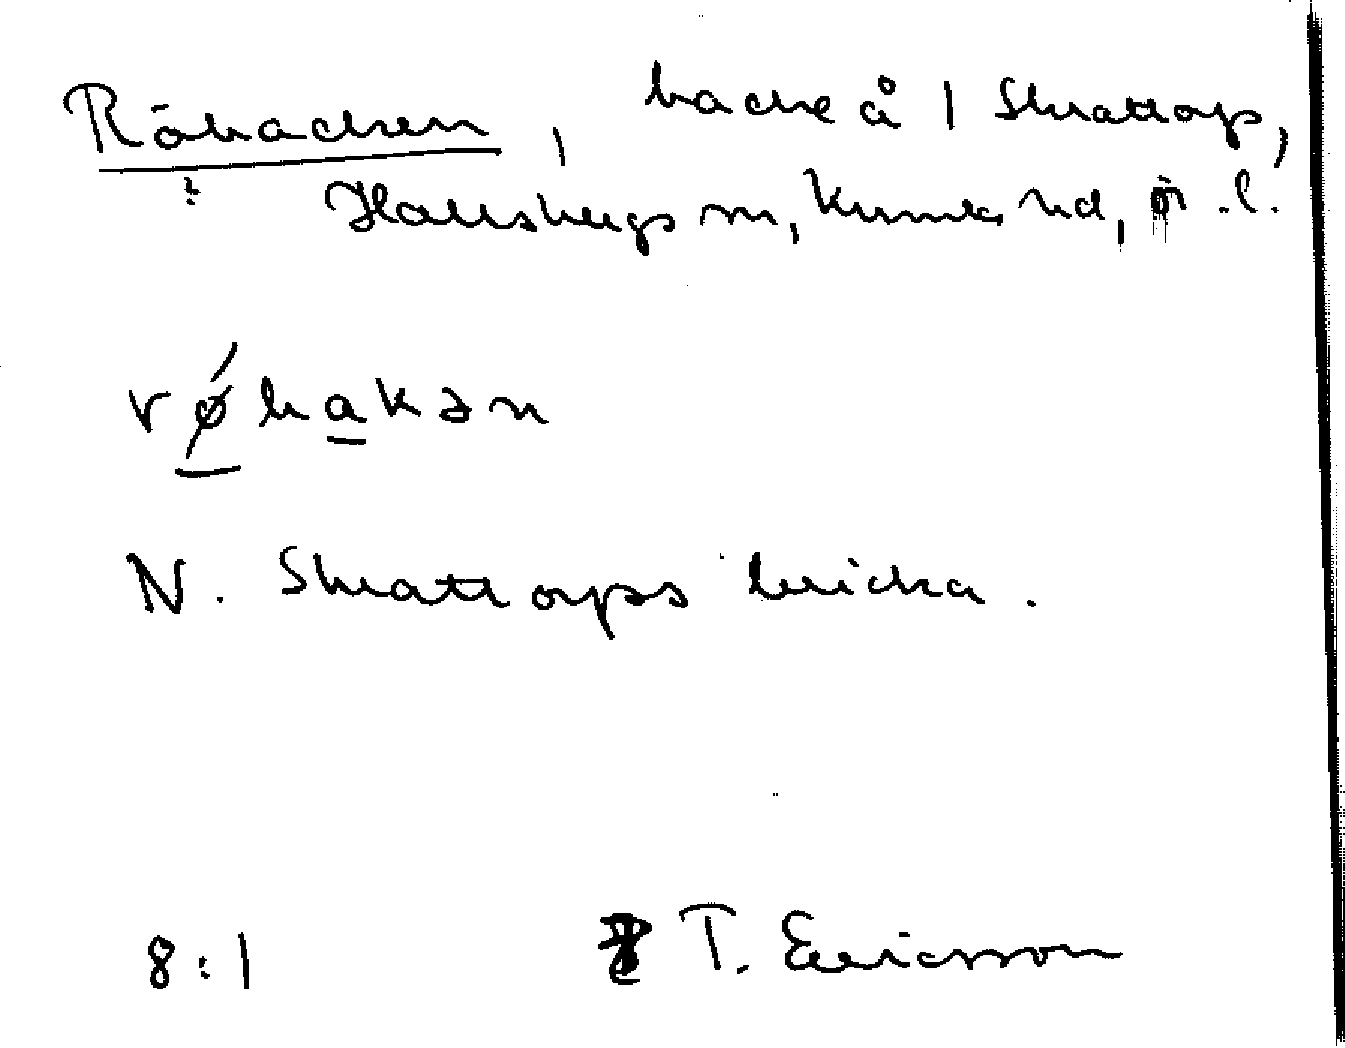 Röbacken, backe å 1 Skrattorp,
Hallsbergs sn, Kumla hd, Ör. l.
røbakən
N. Skrattorps bricka.
8:1 T. Ericsson